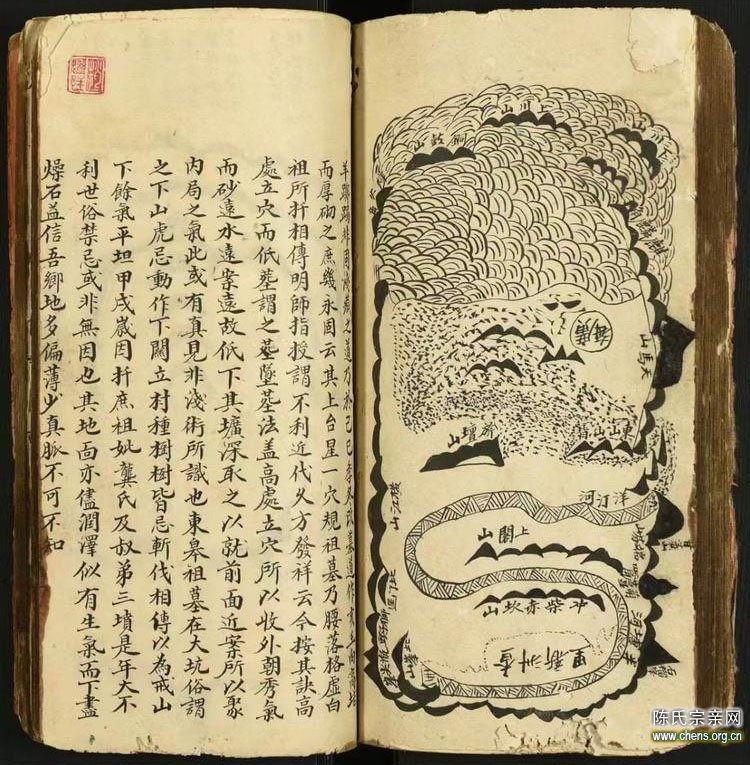 之道乃於己巳季冬改墓道作
而厚砌之庶幾永固云其上台星一穴規祖墓乃腰落格虛白
祖所扦相傳明師指授謂不利近代久方發祥云今按其訣高
處立穴而低塟謂之塟墜塟法盖高處立穴所以收外朝秀氣
而砂遠水遠案遠故低下其壙深取之以就前面近案所以聚
內局之氣此或有真見非淺術所識也東皋祖墓在大坑俗謂
之下山虎忌動作下關立村種樹樹皆忌斬伐相傳以為戒山
下餘氣平坦甲戌歲因扦庶祖妣龔氏及叔弟三墳是年大不
利世俗禁忌或非無因也其地面亦儘潤澤似有生氣而下盡
燥石益信吾鄉地多偏薄少真脈不可不知
上川山
銅鼓山
天馬山
洋汀河
上閣山
柴赤坎山
陈氏宗亲网
www.chens.org.cn